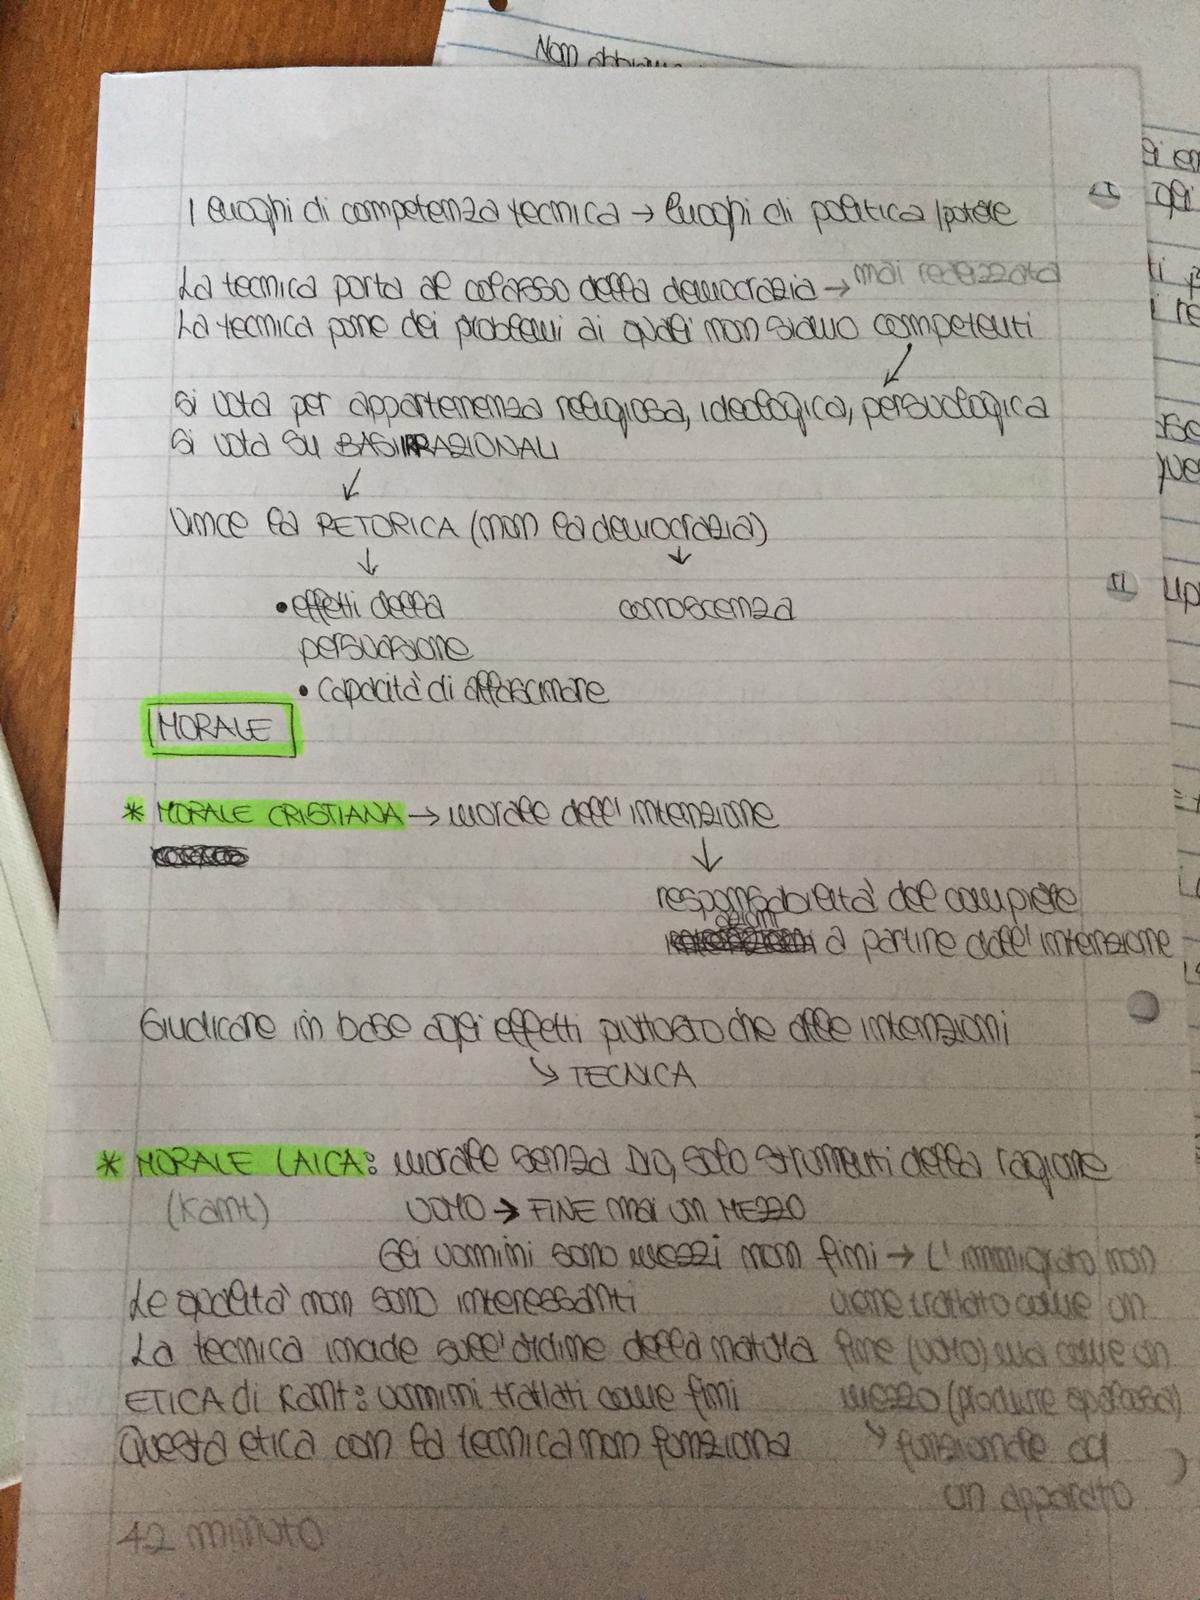 Non abbiamo
I luoghi di competenza tecnica → luoghi di politica / potere
La tecnica porta al colasso della democrazia → mai realizzata
La tecnica pone dei problemi ai quali non siamo competenti
si vota per appartenenza religiosa, ideologica, persuologica
si vota su BASI IRRAZIONALI
Vince la RETORICA (non la democrazia)
• effetti della conoscenza
persuasione
• capacità di affascinare
MORALE
* MORALE CRISTIANA → morale dell'intenzione
responsabilità del compiere
azioni
a partire dall'intenzione
Giudicare in base agli effetti piuttosto che alle intenzioni
↘ TECNICA
* MORALE LAICA: morale senza Dio, solo strumenti della ragione
(Kant) UOMO → FINE mai un MEZZO
Gli uomini sono mezzi non fini → L'immigrato non
Le qualità non sono interessanti viene trattato come un
La tecnica incide sull'ordine della natura fine (uomo) ma come un
ETICA di Kant: uomini trattati come fini mezzo (produrre qualcosa)
Questa etica con la tecnica non funziona ↘ funzionale ad
un apparato
42 minuto